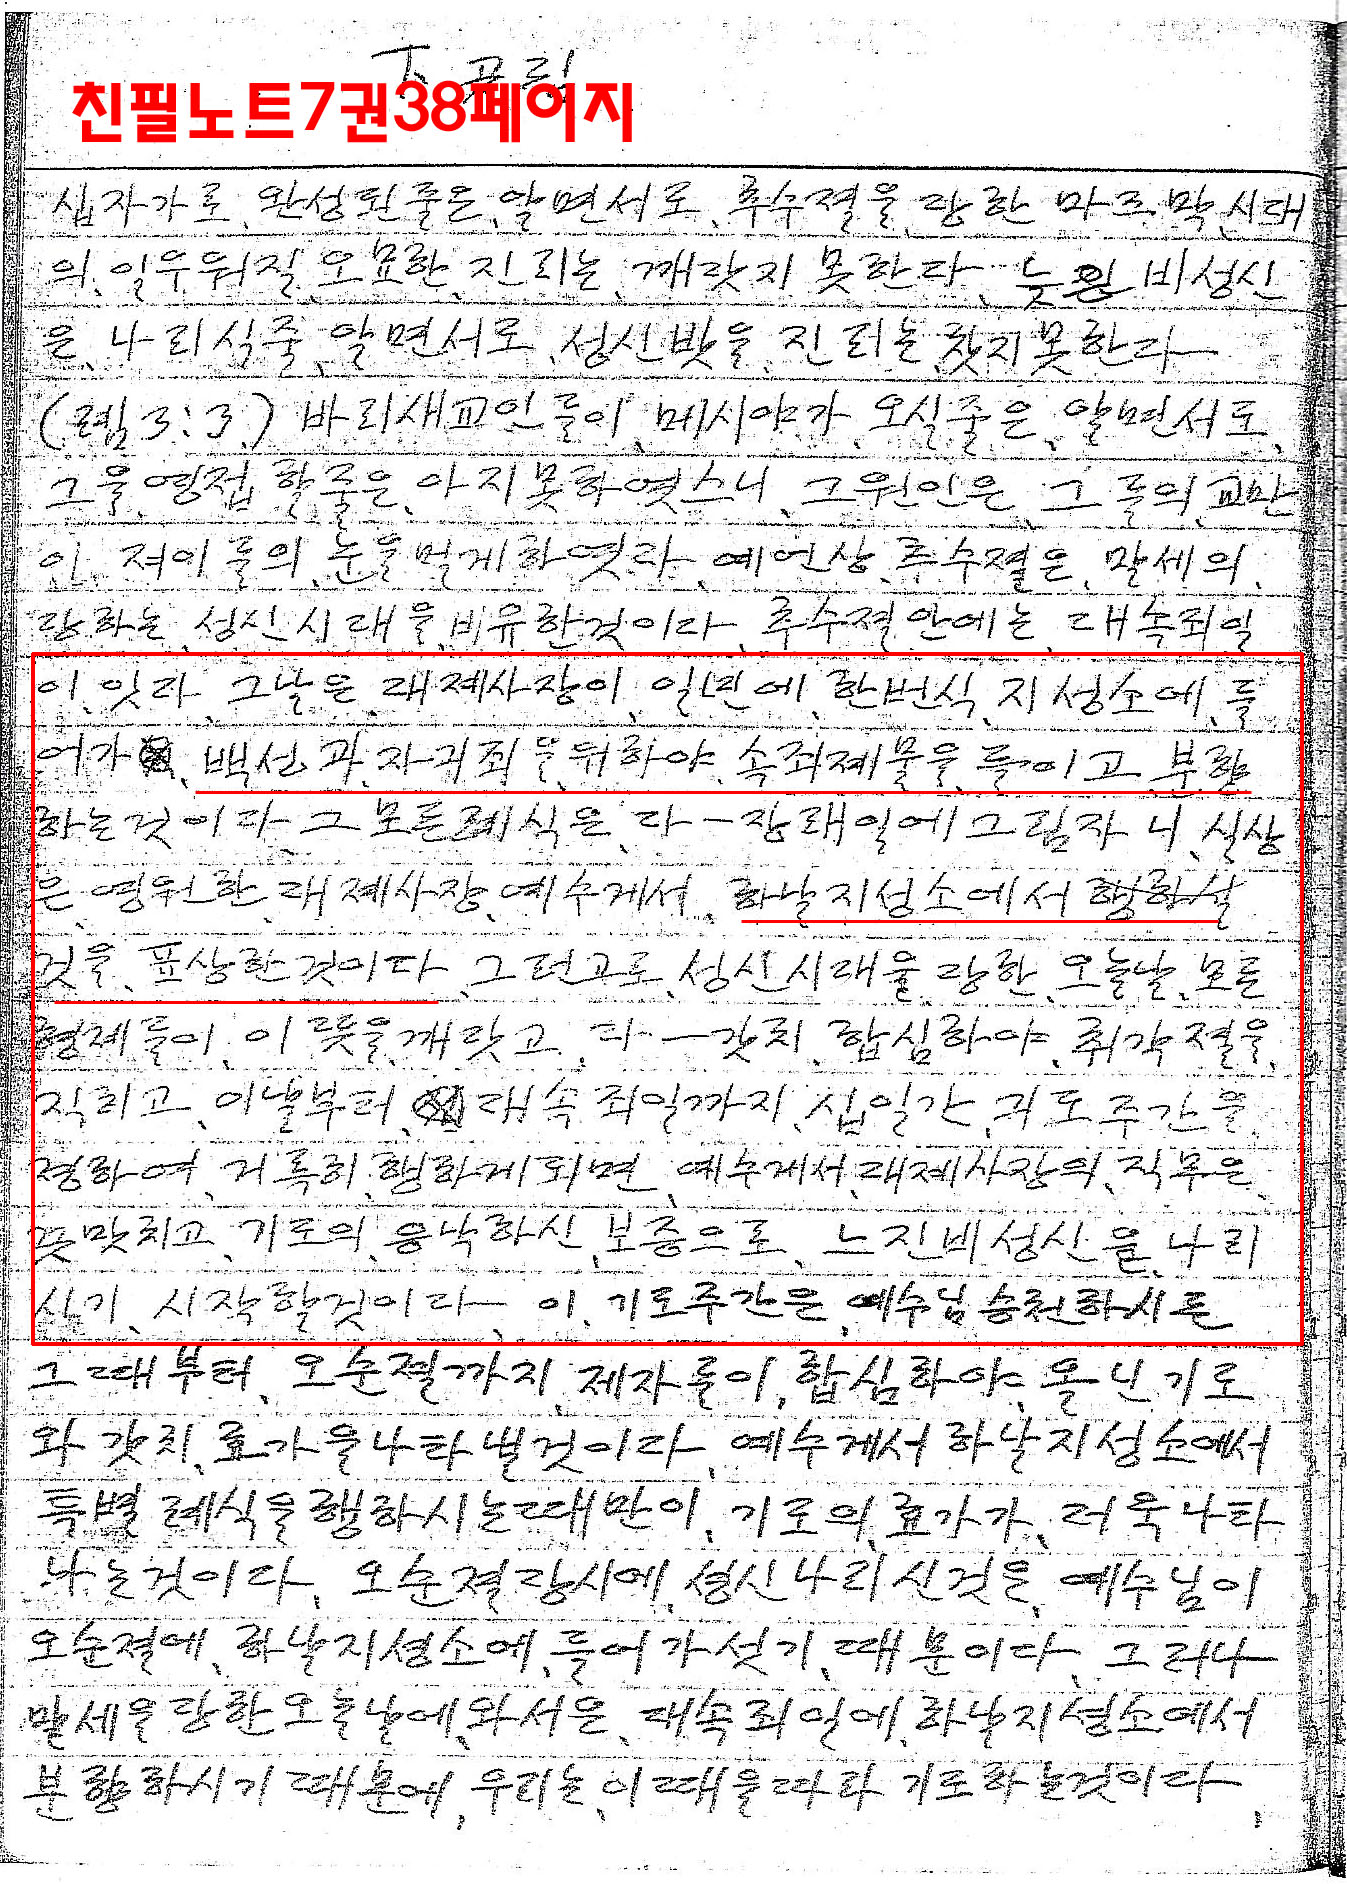 친필노트7권38페이지
십자가로, 완성된줄은, 알면서도, 추수졀을, 당한 마즈막, 시대
의, 일우워질, 오묘한, 진리는, 깨닷지 못한다, 늦은 비성신
은, 나리실줄, 알면서도, 성신밧을, 진리는, 찾지못한다
(렘 3:3,) 바리새교인들이, 메시야가, 오실줄은, 알면서도,
그을, 영접 할줄은, 아지못하엿스니, 그원인은, 그들의, 교만
이, 져이들의, 눈을멀게하엿다, 예언상, 추수졀은, 말세의,
당하는, 성신시대을, 비유한것이다, 추수졀안에는, 대속죄일
이, 잇다, 그날은, 대졔사장이, 일년에, 한번식, 지성소에, 들
어가, 백성과, 자귀죄을, 위하야, 속죄졔물을, 들이고, 분향
하는것이다, 그 모든례식은, 다ㅡ장래일에그림자니, 실상
은, 영원한, 대졔사장, 예수게서, 하날지성소에서 행하실
것을, 표상한것이다, 그런고로, 성신시대을, 당한, 오늘날, 모든
형졔들이, 이 뜻을, 깨닷고, 다ㅡ갓치, 합심하야, 취각졀을,
직히고, 이날부터, 대속죄일까지, 십일간, 귀도주간을,
졍하여, 거룩히, 행하게되면, 예수게서, 대졔사장의, 직무을,
끗맛치고, 기도의, 응낙하신, 보증으로, 느진비성신을, 나리
시기, 시작할것이다ㅡ 이, 기도주간은, 예수님승천하시든
그때부터, 오순졀까지, 제자들이, 합심하야, 올닌기도
와 갓치, 효가을나타낼것이다, 예수게서하날지성소에서
특별례식을행하시는때만이, 기도의, 효가가, 더욱나타
나는것이다, 오순졀당시에, 셩신나리신것은, 예수님이
오순졀에, 하날지셩소에, 들어가셧기, 때문이다, 그러나
말세을당한오늘날에, 와서은, 대속죄일에, 하날지셩소에서
분향하시기때문에, 우리는, 이때을따라 기도하는것이다,